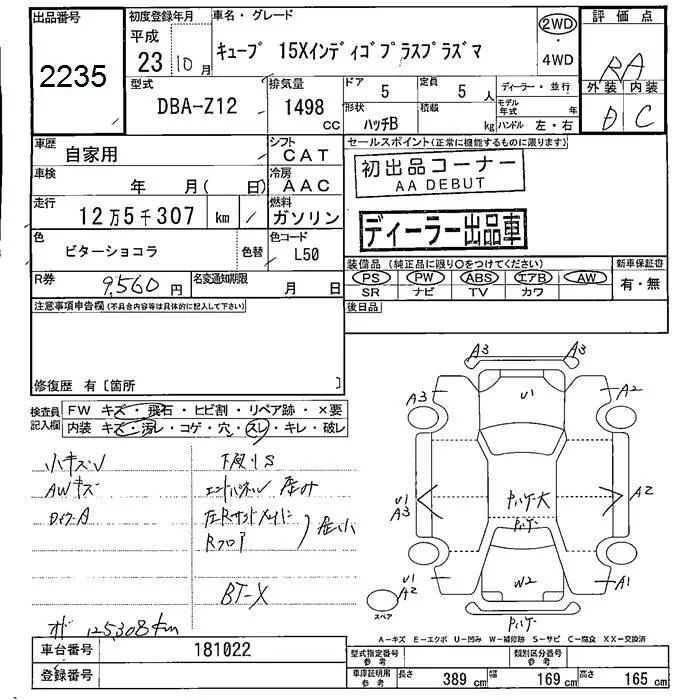 出品番号
2235
初度登録年月
平成
23 10 月
車名・グレード
キューブ 15Xインディゴプラスプラズマ
2WD
・
4WD
評価点
RA
外装 内装
D C
型式
DBA-Z12
排気量
1498
CC
ドア 5
定員 5 人
形状
ハッチB
積載
kg
ディーラー・並行
モデル年式 年
ハンドル 左・右
車歴
自家用
シフト
CAT
車検
年 月( 日)
冷房
AAC
走行
12万5千307 km
燃料
ガソリン
色
ビターショコラ
色替
色コード
L50
R券
9,560 円
名変通知期限
月 日
セールスポイント(正常に機能するものに限ります)
初出品コーナー
AA DEBUT
ディーラー出品車
装備品(純正品に限り○をつけてください)
PS PW ABS エアB AW
SR ナビ TV カワ
新車保証書
有・無
後日品
注意事項申告欄(不具合内容等は具体的に記入して下さい)
修復歴 有〔箇所 〕
検査員記入欄
FW キズ・飛石・ヒビ割・リペア跡・×要
内装 キズ・汚レ・コゲ・穴・スレ・キレ・破レ
小キズ
AWキズ
下廻りS
エンドパネル
Rフロア
BT-X
125,308km
A3 A3
A3 U1 A2
U1
A3
A2
U1
A2
W2
A1
スペア
A-キズ E-エクボ U-凹み W-補修跡 S-サビ C-腐食 XX-交換済
車台番号 181022
登録番号
型式指定番号
参考
類別区分番号
参考
車庫証明用
参考
長さ 389 cm 幅 169 cm 高さ 165 cm